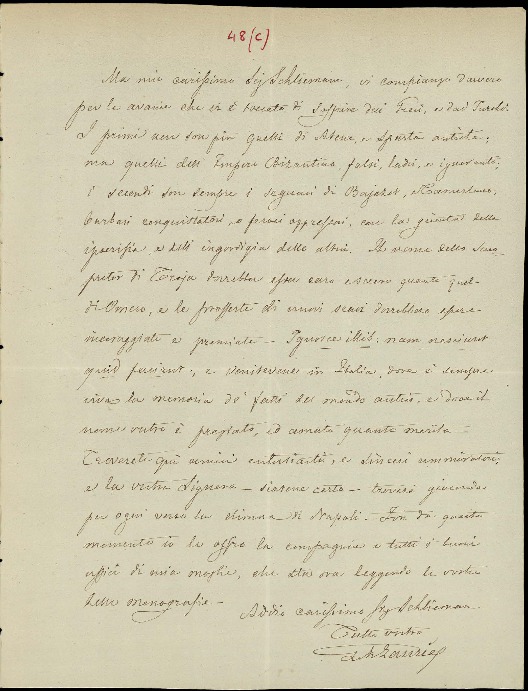 48(c)
Ma mio carissimo Sig Schliemann, vi compiango davvero
per le avanie che vi è toccato di soffrire dai Greci, e dai Turchi.
I primi non son più quelli di Atene, e Sparta antica;
ma quelli dell' Impero Bizantino, falsi, ladri, e ignoranti;
i secondi son sempre i seguaci di Bajazet,
barbari conquistatori, e feroci oppressori, con la giunta della
ipocrisia e dell' ingordigia della altrui. Il nome dello Sco-
pritor di Troja dovrebbe esser caro e sacro quanto quel
di Omero, e le profferte di nuovi scavi dovrebbero essere
incoraggiate e premiate - Ignosce illis, nam nesciunt
quid faciunt, e venitevene in Italia, dove è sempre
viva la memoria de' fatti del mondo antico, e dove il
nome vostro è pregiato, ed amato quanto merita -
Troverete qui amici entusiasti, e sinceri ammiratori,
e la vostra Signora - siatene certo - troverà giocondo
per ogni verso la dimora di Napoli - Fin da questo
momento io le offro la compagnia e tutti i buoni
uffici di mia moglie, che sta ora leggendo le vostre
belle monografie -
Addio carissimo Sig Schliemann
Tutto vostro